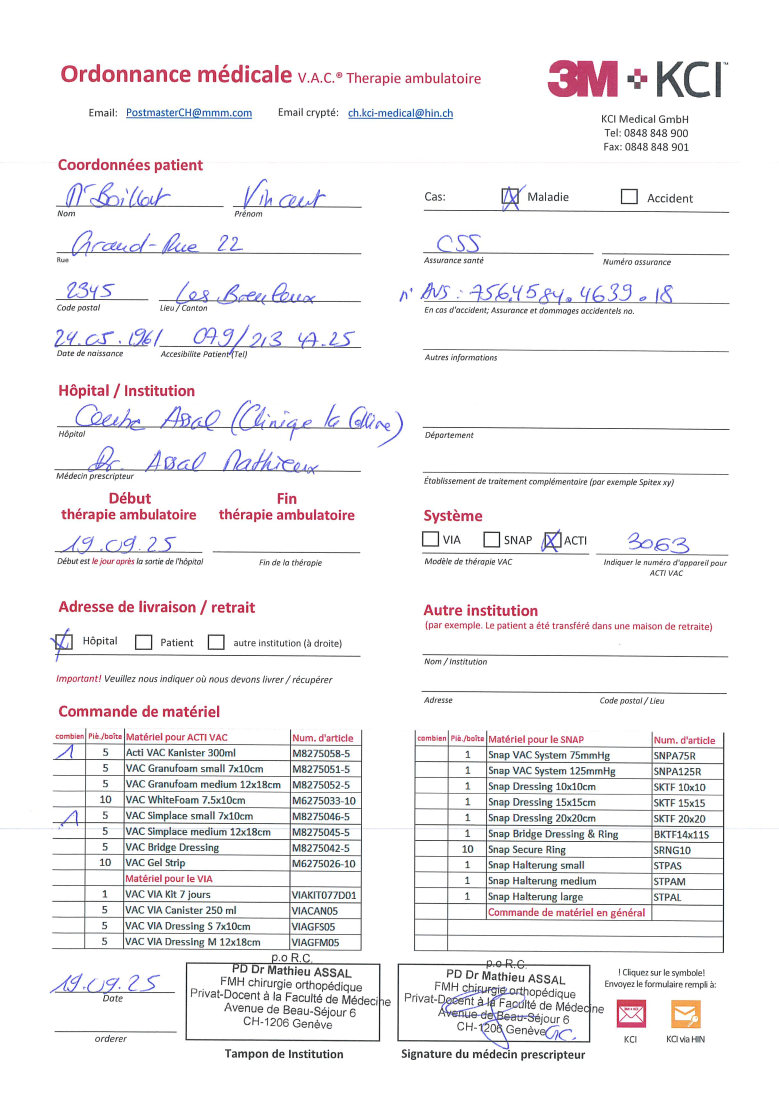 Ordonnance médicale V.A.C.® Therapie ambulatoire
3M KCI™
Email: PostmasterCH@mmm.com Email crypté: ch.kci-medical@hin.ch
KCI Medical GmbH
Tel: 0848 848 900
Fax: 0848 848 901
Coordonnées patient
Mr Boillat Vincent
Nom Prénom
Cas: Maladie Accident
Grand-Rue 22
Rue
CSS
Assurance santé Numéro assurance
2345 Les Breuleux
Code postal Lieu / Canton
n° AVS : 756.4584.4639.18
En cas d'accident; Assurance et dommages accidentels no.
24.05.1961 079/213 47.25
Date de naissance Accesibilite Patient (Tel)
Autres informations
Hôpital / Institution
Centre Assal (Clinique la Colline)
Hôpital
Département
Dr. Assal Mathieu
Médecin prescripteur
Établissement de traitement complémentaire (par exemple Spitex xy)
Début
thérapie ambulatoire
Fin
thérapie ambulatoire
19.09.25
Début est le jour après la sortie de l'hôpital
Fin de la thérapie
Système
VIA SNAP ACTI 3063
Modèle de thérapie VAC
Indiquer le numéro d'appareil pour
ACTI VAC
Adresse de livraison / retrait
Hôpital Patient autre institution (à droite)
Important! Veuillez nous indiquer où nous devons livrer / récupérer
Autre institution
(par exemple. Le patient a été transféré dans une maison de retraite)
Nom / Institution
Adresse Code postal / Lieu
Commande de matériel
combien Piè./boîte Matériel pour ACTI VAC Num. d'article
1 5 Acti VAC Kanister 300ml M8275058-5
5 VAC Granufoam small 7x10cm M8275051-5
5 VAC Granufoam medium 12x18cm M8275052-5
10 VAC WhiteFoam 7.5x10cm M6275033-10
1 5 VAC Simplace small 7x10cm M8275046-5
5 VAC Simplace medium 12x18cm M8275045-5
5 VAC Bridge Dressing M8275042-5
10 VAC Gel Strip M6275026-10
Matériel pour le VIA
1 VAC VIA Kit 7 jours VIAKIT077D01
5 VAC VIA Canister 250 ml VIACAN05
5 VAC VIA Dressing S 7x10cm VIAGFS05
5 VAC VIA Dressing M 12x18cm VIAGFM05
combien Piè./boîte Matériel pour le SNAP Num. d'article
1 Snap VAC System 75mmHg SNPA75R
1 Snap VAC System 125mmHg SNPA125R
1 Snap Dressing 10x10cm SKTF 10x10
1 Snap Dressing 15x15cm SKTF 15x15
1 Snap Dressing 20x20cm SKTF 20x20
1 Snap Bridge Dressing & Ring BKTF14x11S
10 Snap Secure Ring SRNG10
1 Snap Halterung small STPAS
1 Snap Halterung medium STPAM
1 Snap Halterung large STPAL
Commande de matériel en général
19.09.25
Date
orderer
p.o R.C.
PD Dr Mathieu ASSAL
FMH chirurgie orthopédique
Privat-Docent à la Faculté de Médecine
Avenue de Beau-Séjour 6
CH-1206 Genève
Tampon de Institution
p.o R.C.
PD Dr Mathieu ASSAL
FMH chirurgie orthopédique
Privat-Docent à la Faculté de Médecine
Avenue de Beau-Séjour 6
CH-1206 Genève
Signature du médecin prescripteur
! Cliquez sur le symbole!
Envoyez le formulaire rempli à:
KCI KCI via HIN